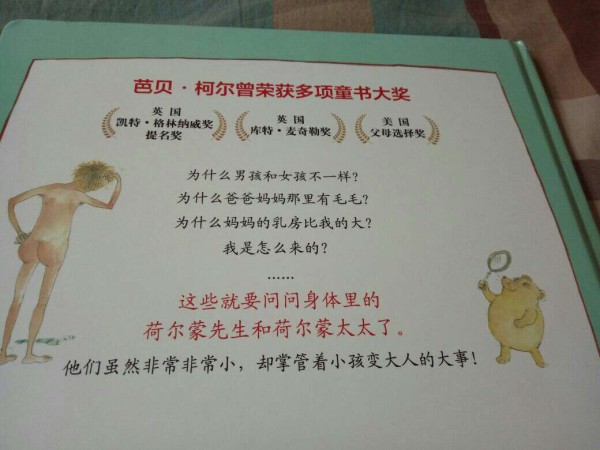 芭贝·柯尔曾荣获多项童书大奖
英国
凯特·格林纳威奖
提名奖
英国
库特·麦奇勒奖
美国
父母选择奖
为什么男孩和女孩不一样？
为什么爸爸妈妈那里有毛毛？
为什么妈妈的乳房比我的大？
我是怎么来的？
……
这些就要问问身体里的
荷尔蒙先生和荷尔蒙太太了。
他们虽然非常非常小，却掌管着小孩变大人的大事！